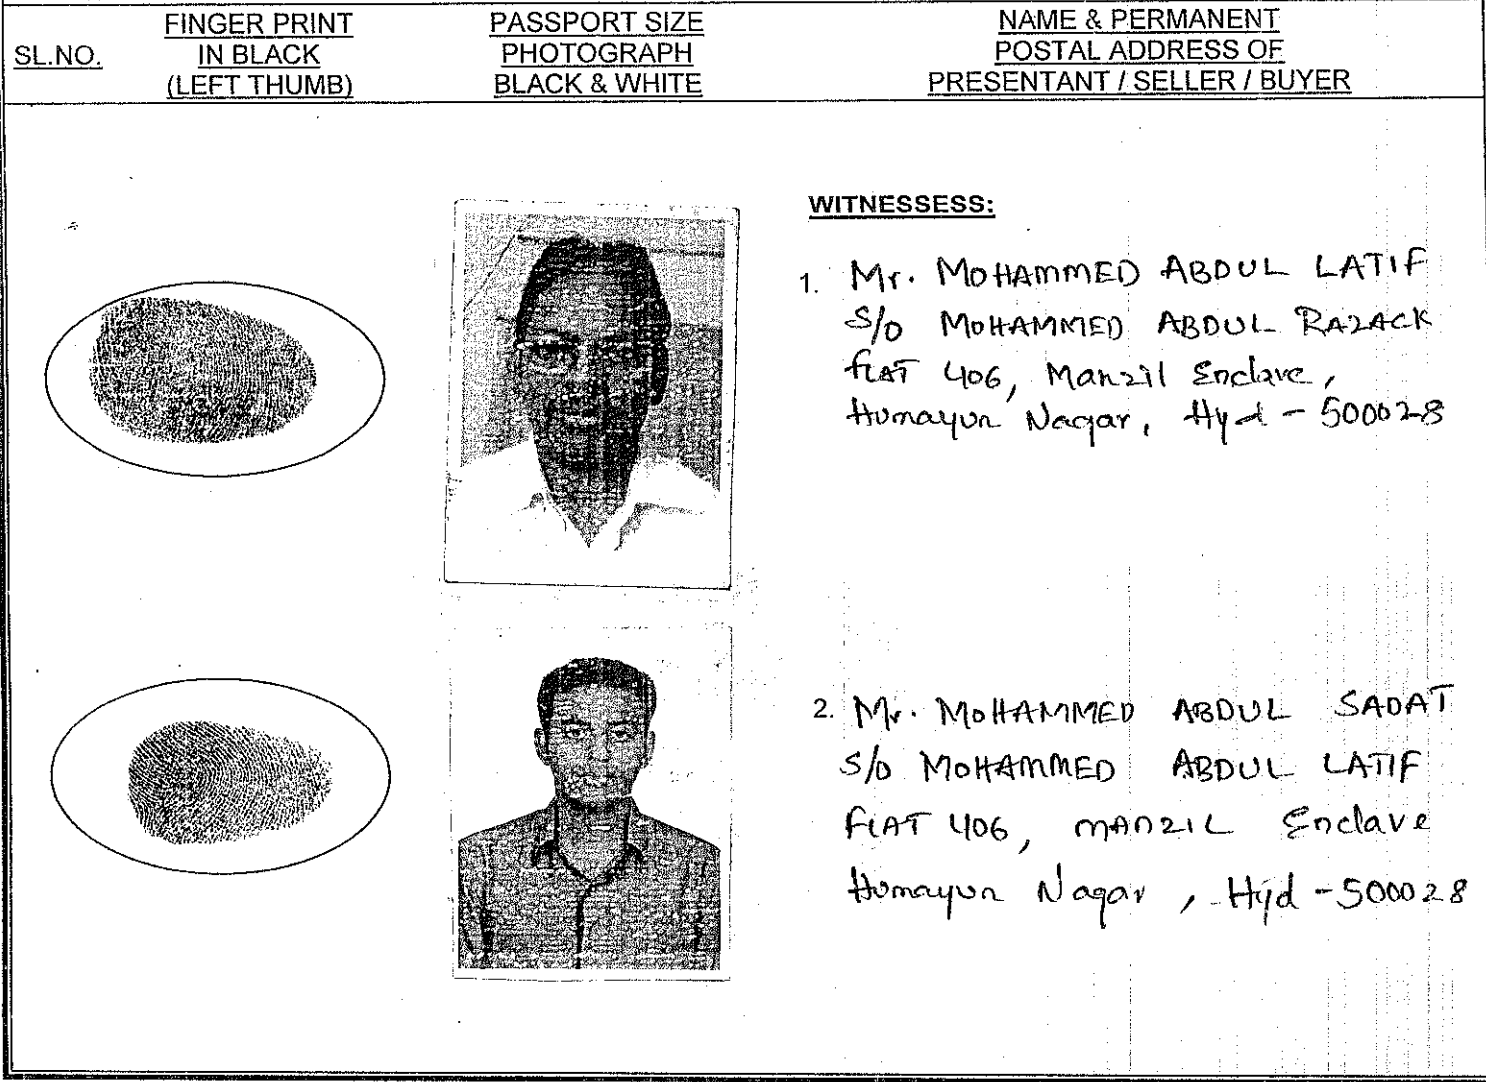 SL.NO.
FINGER PRINT
IN BLACK
(LEFT THUMB)
PASSPORT SIZE
PHOTOGRAPH
BLACK & WHITE
NAME & PERMANENT
POSTAL ADDRESS OF
PRESENTANT / SELLER / BUYER
WITNESSESS:
1. Mr. MOHAMMED ABDUL LATIF
S/o MOHAMMED ABDUL RAZACK
FLAT 406, Manzil Enclave,
Humayun Nagar, Hyd - 500028
2. Mr. MOHAMMED ABDUL SADAT
S/o MOHAMMED ABDUL LATIF
FLAT 406, MANZIL Enclave
Humayun Nagar, Hyd - 500028